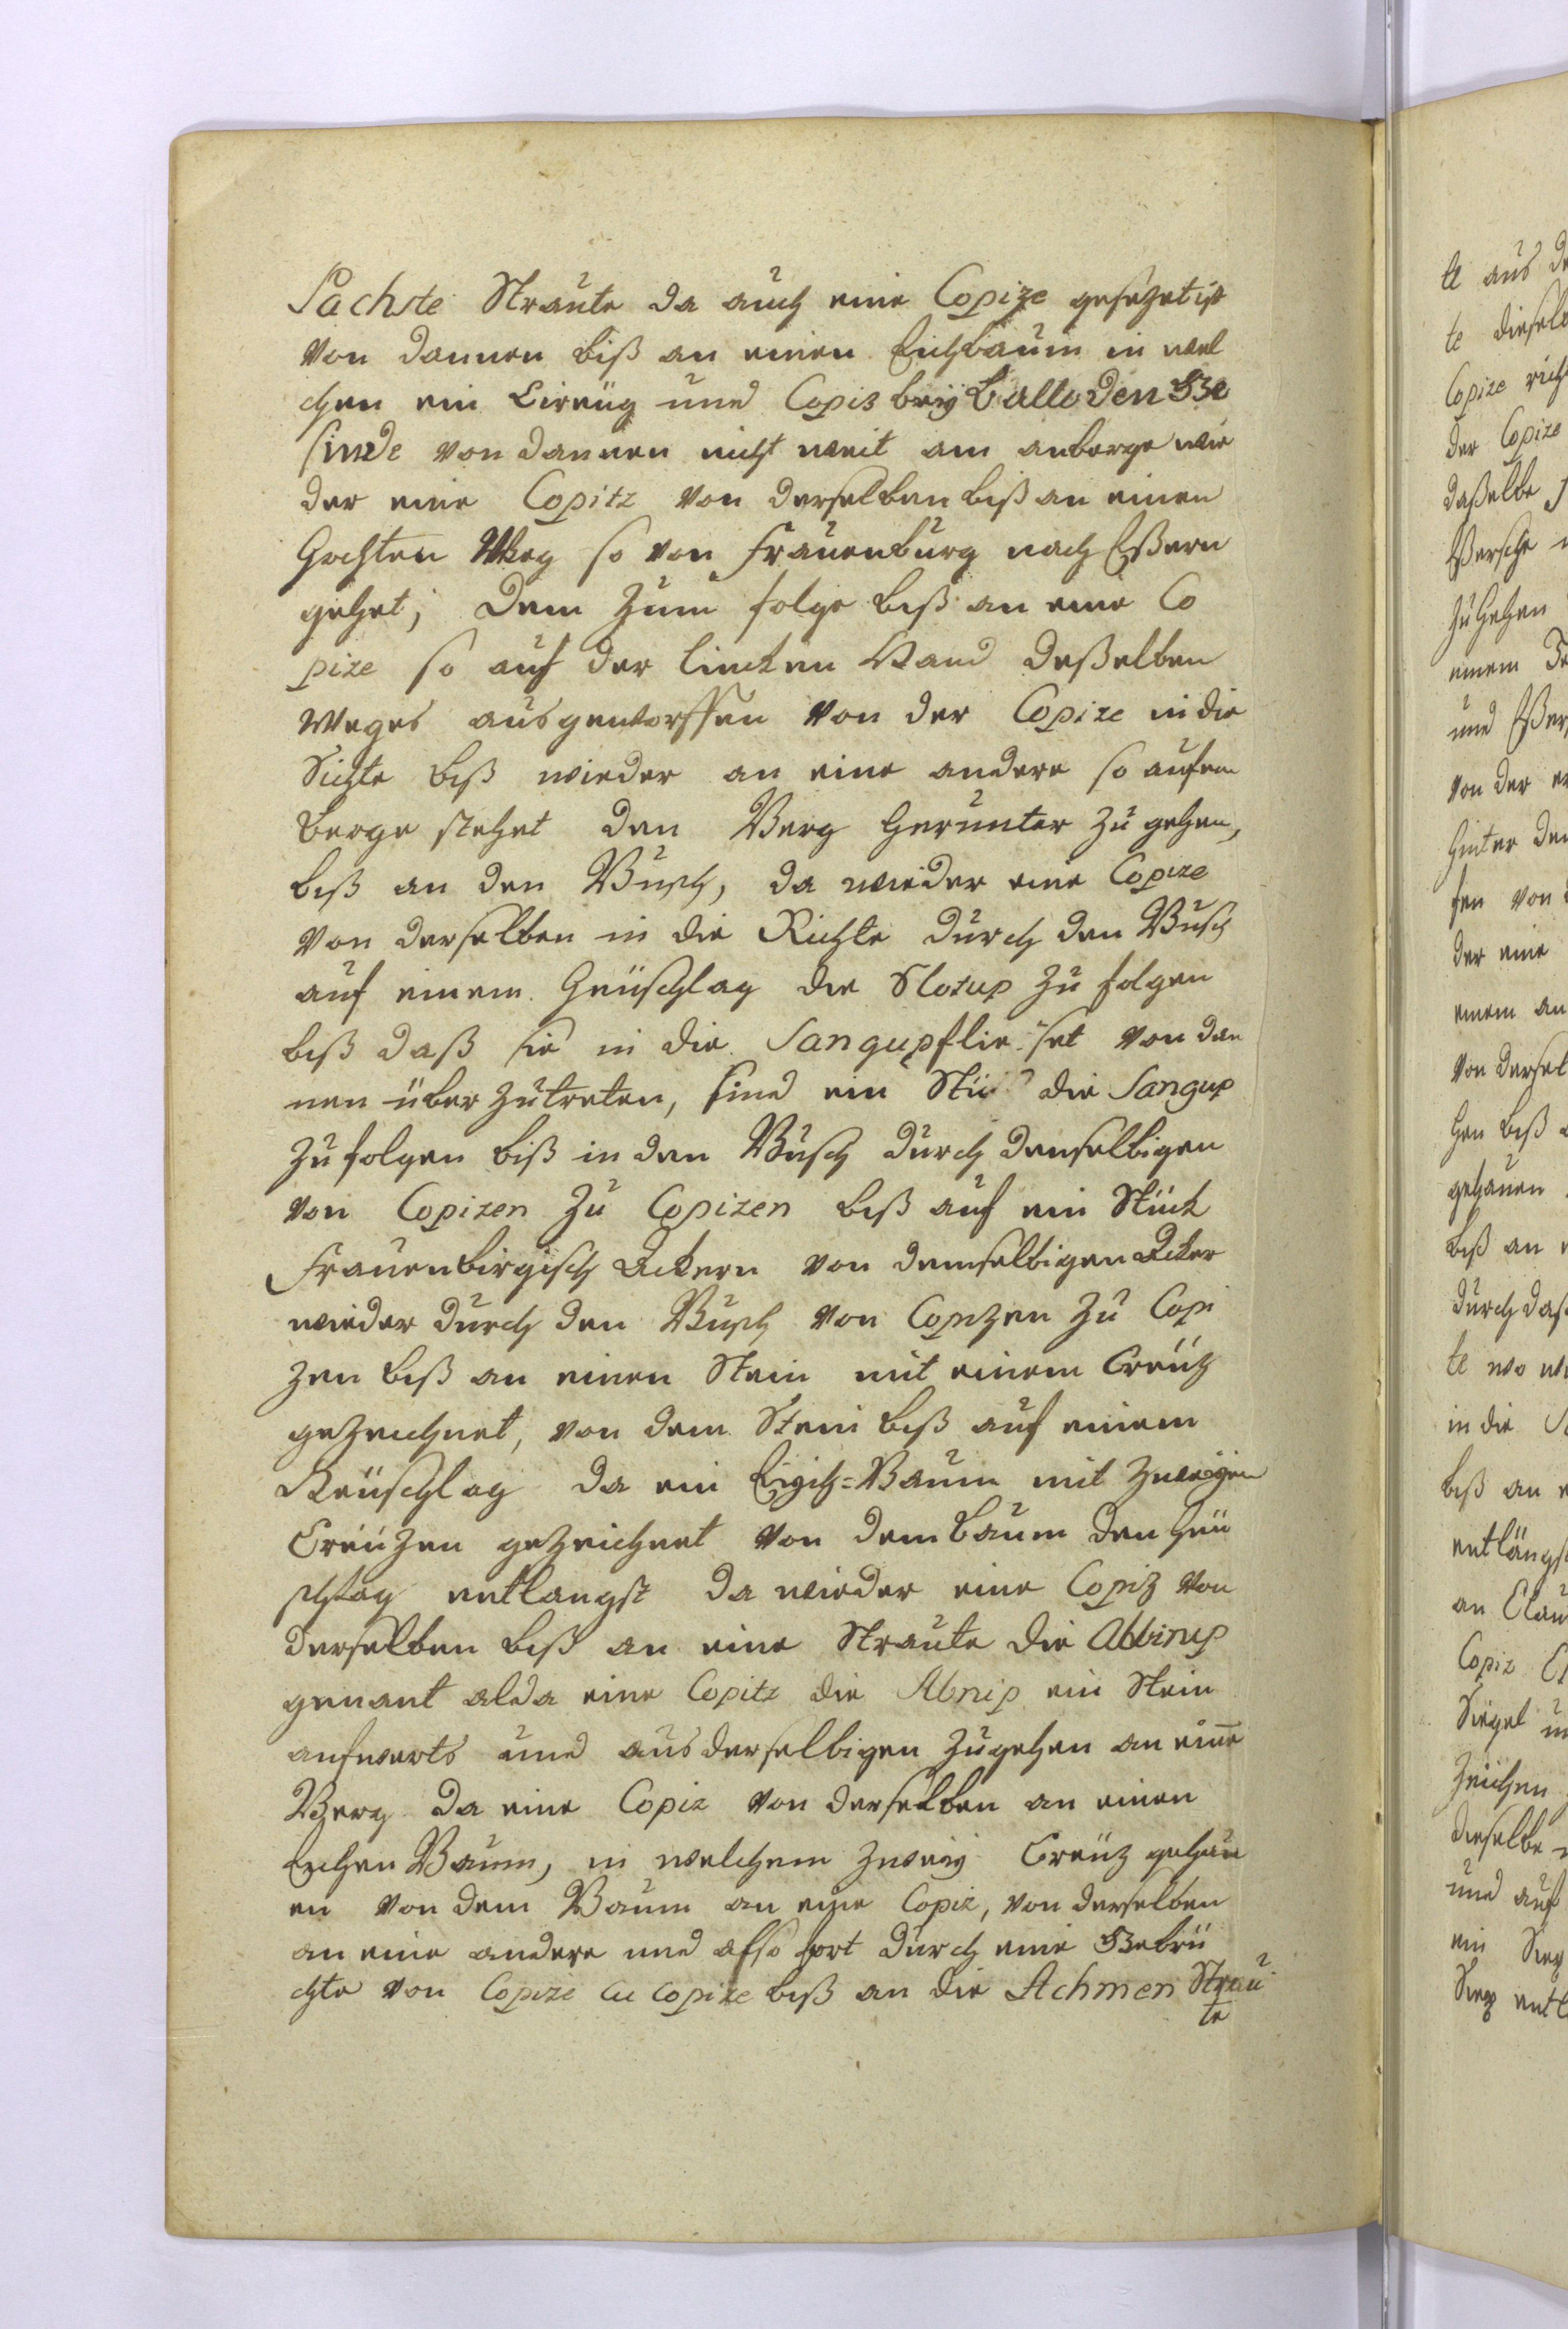 Sachste Straute da auch eine Copize gesezet ist
von dannen biß an einen Eichbaum in wel
chen ein Creüz und Copiz beÿ
sinde von dannen nicht weit am anberge wie
der eine Copitz von derselben biß an einen
Hochten Weg so von Frauenburg nach Eßern
gehet; dem zum folge biß an eine Co
pize so auf der lincken Hand deßelben
Weges ausgeworffen von der Copize in die
Richte biß wieder an eine andere so aufem
berge stehet den Berg herunter zu gehen,
biß an den Busch, da wieder eine Copize
von derselben in die Richte durch den Busch
auf einem Heüschlag die Slotup zu folgen
biß daß sie in die Sangup fließet von dan
nen über zu treten, und ein Stück die Sangup
zu folgen biß in den Busch durch denselbigen
von Copizen zu Copizen biß auf ein Stück
Frauenbirgisch Ackern von demselbigen Acker
wieder durch den Busch von Copizen zu Copi
zen biß an einen Stein mit einem Creüz
gezeichnet, von dem Stein biß auf einem
Heüschlag da ein Eich=Baum mit zweÿen
Creüzen gezeichnet von dem baum den Heü
schlag entlangst da wieder eine Copiz von
derselben biß an eine Straute die Abbirup
genant alda eine Copitz die Abnip ein Stein
aufwerts und aus derselbigen zugehen an eine
Berg da eine Copiz von derselben an einen
Eichen Baum, in welchem zweÿ Creüz gehau
en von dem Baum an eine Copiz, von derselben
an eine andere und also fort durch eine Gebrü
chte von Copize zu Copize biß an die Achmen Strau
te
te aus
te dieselb
Copize rich
der Copize
daßelbe
Eßersche
zu gehen
einem
und Eßer
von der
hinter den
fen von
der eine
einem an
von dersel
hen biß
gehauen
biß an
durch daß
te wo
in die
biß an
entlängs
an
Copiz
Siegel
Zeichen
dieselbe
und auf
ein